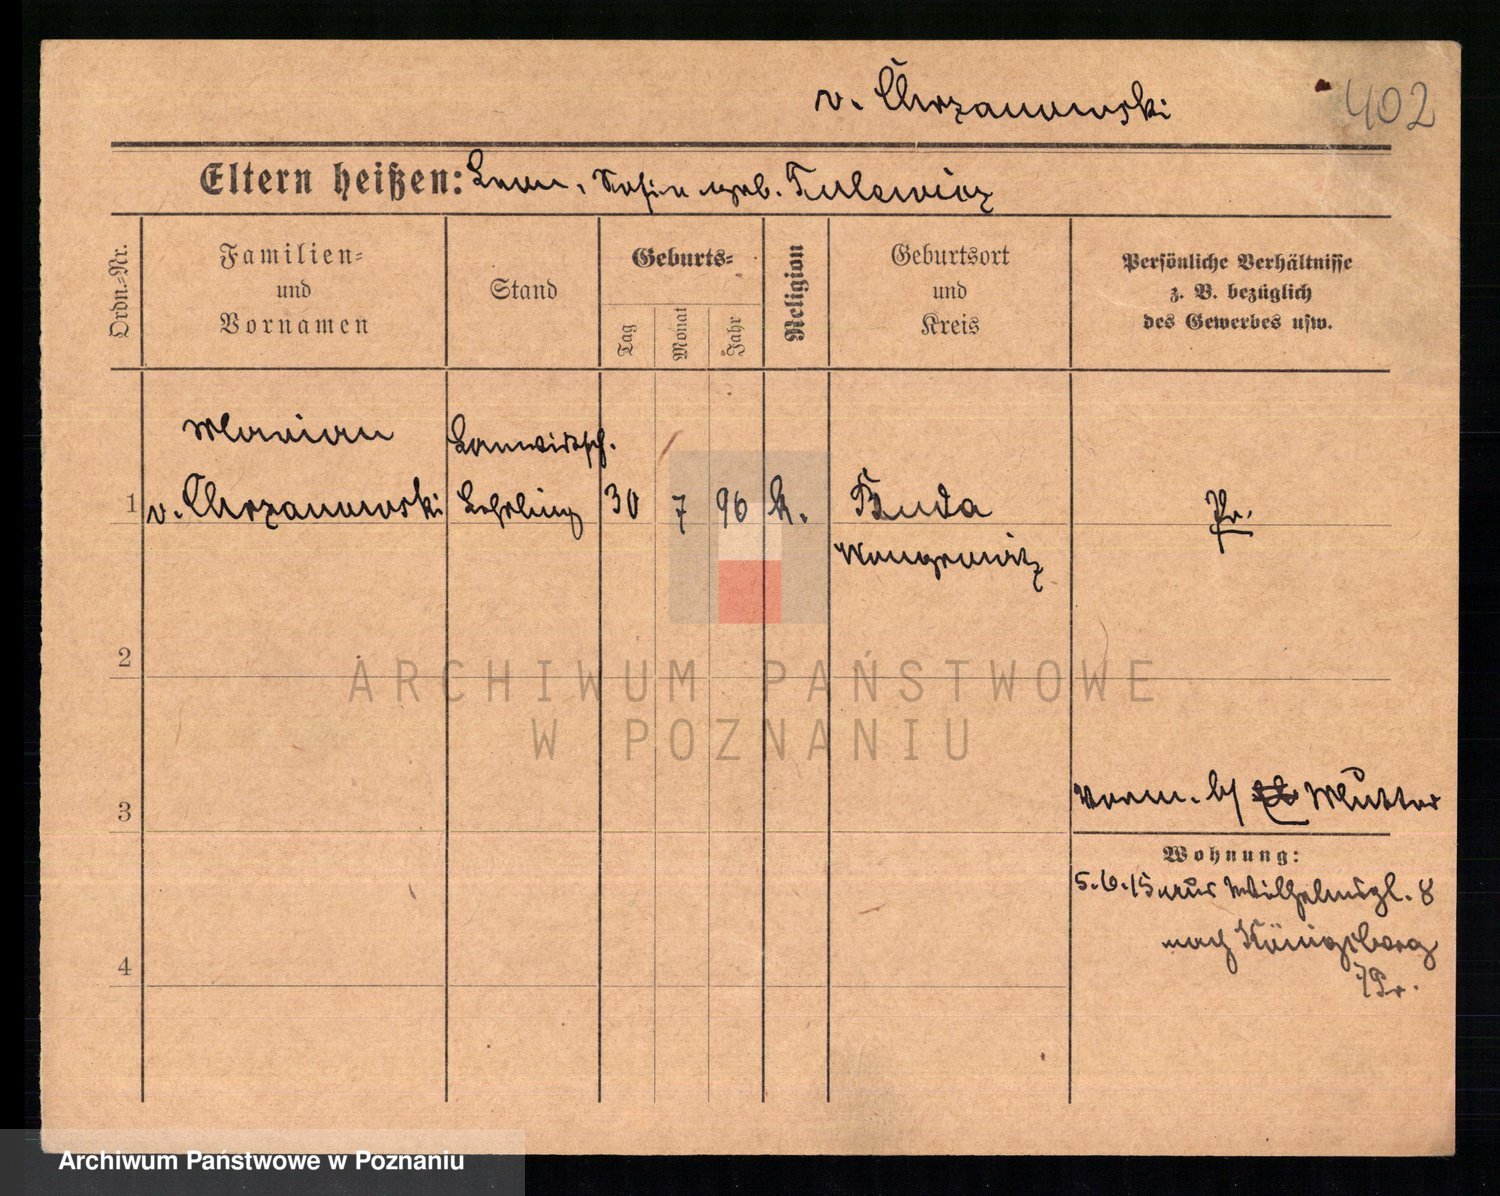 v. Chrzanowski 402
Eltern heißen: Leon, Sofie geb. Tulewicz
Ordn.-Nr.
Familien-
und
Vornamen
Stand
Geburts-
Tag
Monat
Jahr
Religion
Geburtsort
und
Kreis
Persönliche Verhältnisse
z. B. bezüglich
des Gewerbes usw.
Marian Lanwirtsch.
1 v. Chrzanowski Lehrling 30 7 96 k. Ruda Pr.
Wongrowitz
2
ARCHIWUM PAŃSTWOWE
W POZNANIU
3 Verm. b/ Mutter
Wohnung:
5.6.15 aus Wilhelmspl. 8
4 nach Königsberg
/Pr.
Archiwum Państwowe w Poznaniu